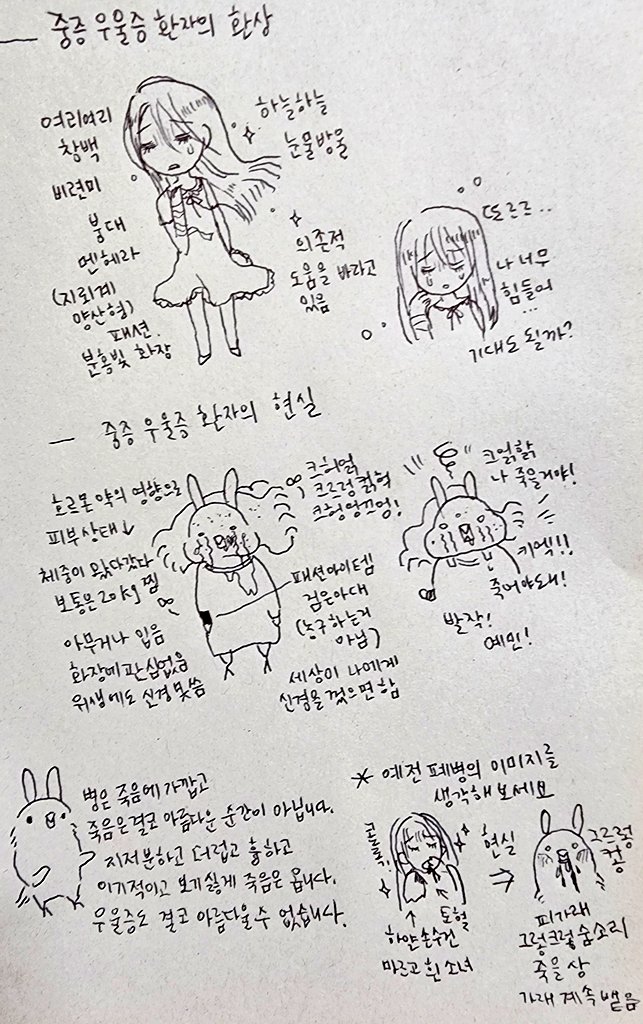 — 중증 우울증 환자의 환상
여리여리
창백
비련미
붕대
멘헤라
(지뢰계
양산형)
패션.
분홍빛 화장
하늘하늘
눈물방울
의존적
도움을 바라고
있음
또르르..
나 너무
힘들어
...
기대도 될까?
— 중증 우울증 환자의 현실
호르몬 약의 영향으로
피부상태↓
체중이 왔다갔다
보통은 20kg 찜
아무거나 입음
화장에 관심없음
위생에도 신경 못씀
크허얽
크르렁 컭헉
크헝엉끄엉!
패션아이템
검은아대
(농구하는거
아님)
세상이 나에게
신경을 껐으면 함
크얽핡
나 죽을거야!
키엑!!
죽어야돼!
발작!
예민!
병은 죽음에 가깝고
죽음은 결코 아름다운 순간이 아닙니다.
지저분하고 더럽고 흉하고
이기적이고 보기싫게 죽음은 옵니다.
우울증도 결코 아름다울 수 없습니다.
* 예전 폐병의 이미지를
생각해보세요
콜록
↑
하얀손수건
↖
토혈
마르고 흰 소녀
현실
⇒
그르렁
컹
피가래
그렁크렁 숨소리
죽을 상
가래 계속 뱉음